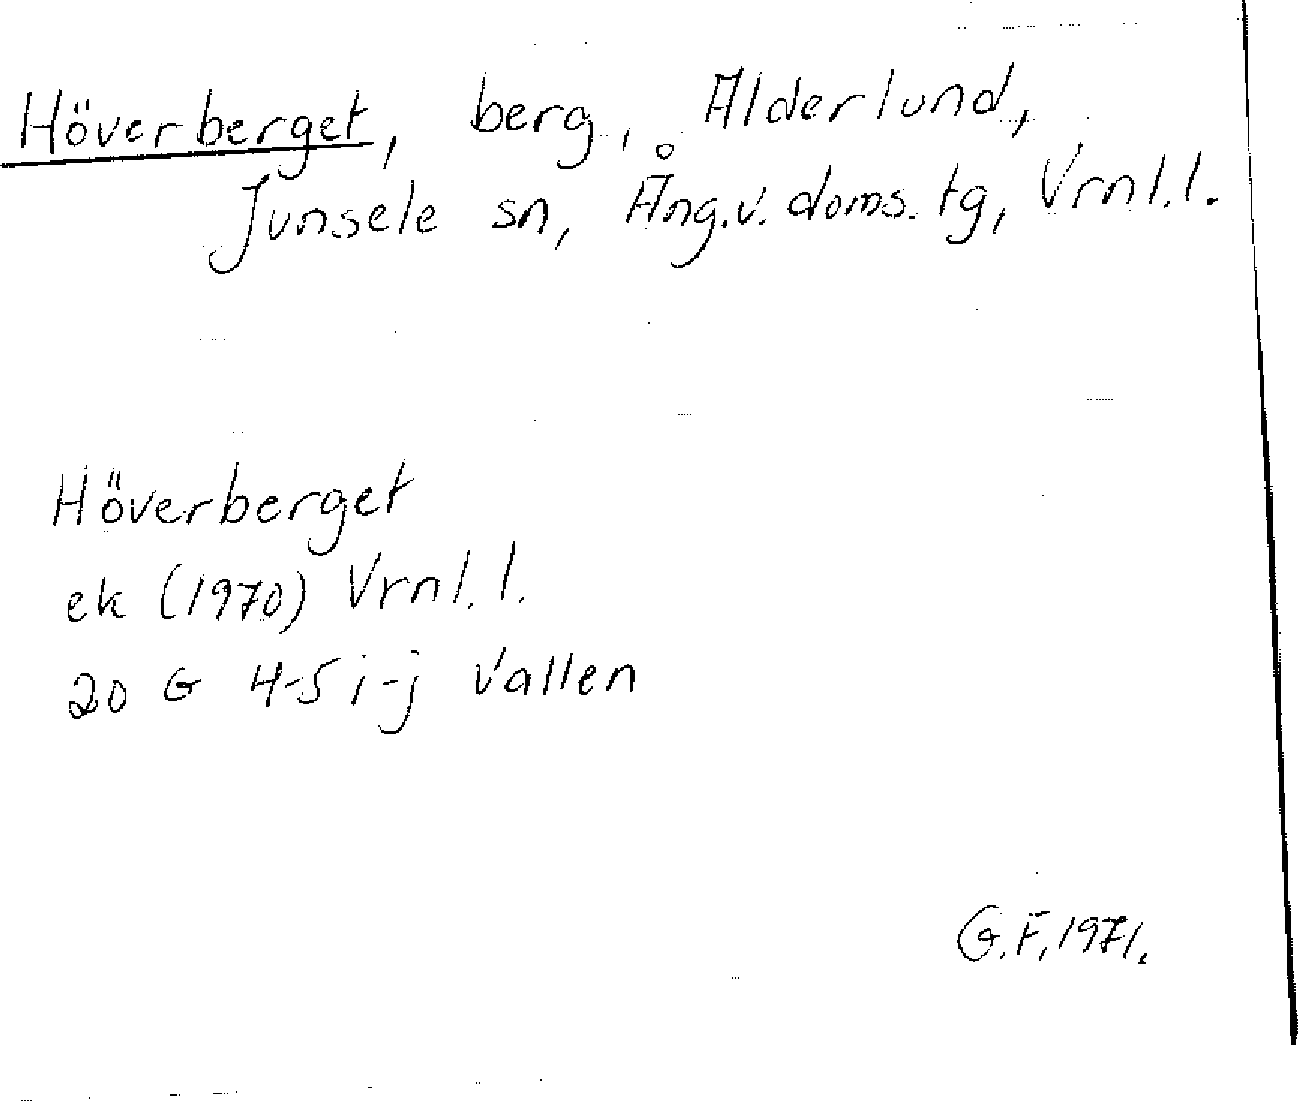 Höverberget, berg, Alderlund,
Junsele sn, Ång.v. doms. tg, Vrnl.l.
Höverberget
ek (1970) Vrnl.l.
20 G 4-5 i-j Vallen
G.F. 1971.